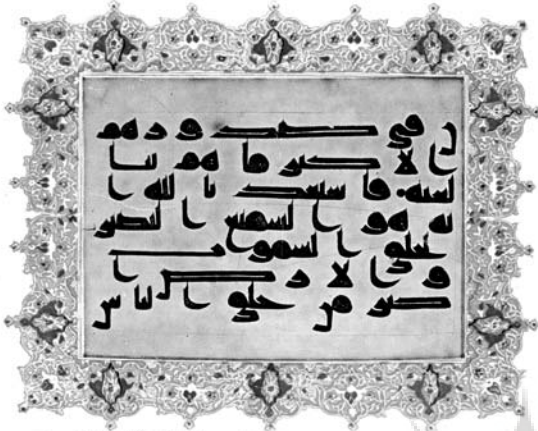 ن في صدورهم
إلا كبر ما هم ببا
لغيه فاستعذ بالله ا
نه هو السميع البصير
لخلق السموت
والأرض ا
كبر من خلق الناس